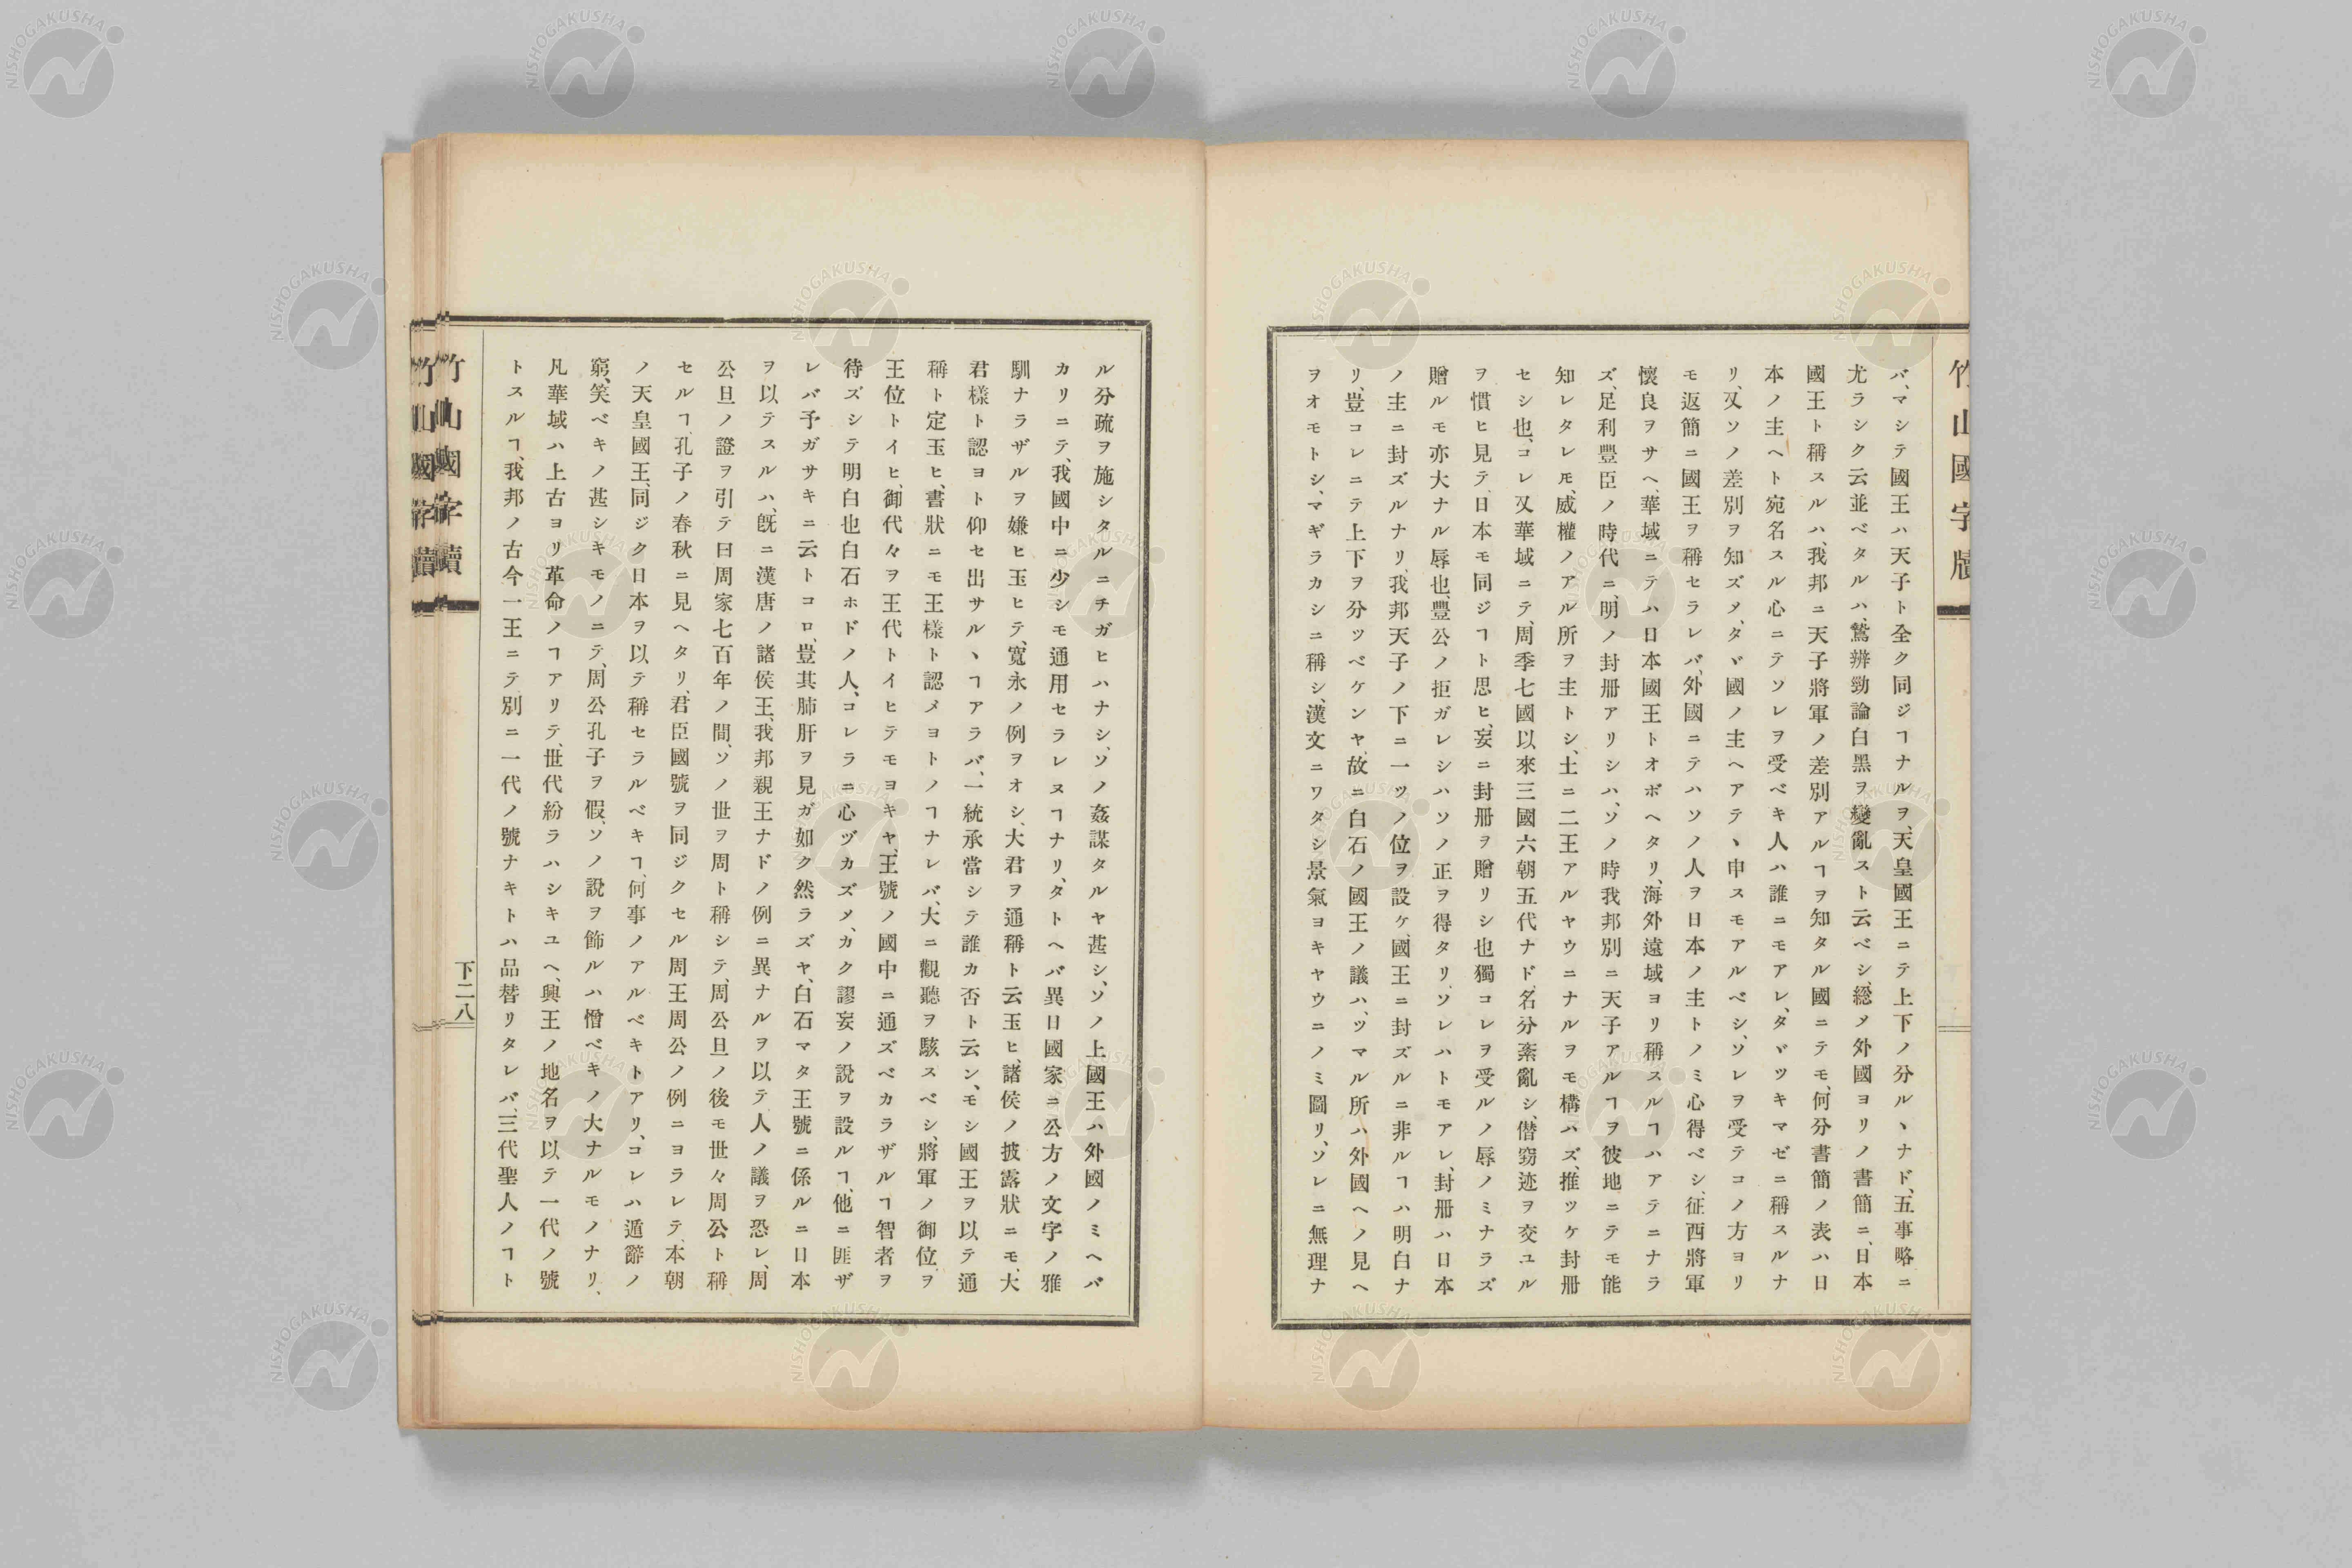 竹山國字牘
バ、マシテ國王ハ天子ト全ク同ジヿナルヲ、天皇國王ニテ上下ノ分ルヽナド、五事略ニ
尤ラシク云並ベタルハ、鷲辨勁論白黑ヲ變亂スト云ベシ、総メ外國ヨリノ書簡ニ、日本
國王ト稱スルハ、我邦ニ天子將軍ノ差別アルヿヲ知タル國ニテモ、何分書簡ノ表ハ日
本ノ主ヘト宛名スル心ニテソレヲ受ベキ人ハ誰ニモアレ、タヾツキマゼニ稱スルナ
リ、又ソノ差別ヲ知ズメ、タヾ國ノ主ヘアテヽ申スモアルベシ、ソレヲ受テコノ方ヨリ
モ返簡ニ國王ヲ稱セラレバ、外國ニテハソノ人ヲ日本ノ主トノミ心得ベシ、征西將軍
懷良ヲサヘ、華域ニテハ日本國王トオボヘタリ、海外遠域ヨリ稱スルヿハアテニナラ
ズ、足利豐臣ノ時代ニ、明ノ封冊アリシハ、ソノ時我邦別ニ天子アルヿヲ彼地ニテモ能
知レタレ𪜈、威權ノアル所ヲ主トシ、土ニ二王アルヤウニナルヲモ構ハズ、推ツケ封冊
セシ也、コレ又華域ニテ、周季七國以來三國六朝五代ナド、名分紊亂シ、僣窃迹ヲ交ユル
ヲ慣ヒ見テ、日本モ同ジヿト思ヒ、妄ニ封冊ヲ贈リシ也獨コレヲ受ルノ辱ノミナラズ
贈ルモ亦大ナル辱也、豐公ノ拒ガレシハソノ正ヲ得タリ、ソレハトモアレ、封冊ハ日本
ノ主ニ封ズルナリ、我邦天子ノ下ニ一ツノ位ヲ設ケ、國王ニ封ズルニ非ルヿハ明白ナ
リ、豈コレニテ上下ヲ分ツベケンヤ、故ニ白石ノ國王ノ議ハ、ツマル所ハ外國ヘノ見ヘ
ヲオモトシ、マギラカシニ稱シ、漢文ニワタシ景氣ヨキヤウニノミ圖リ、ソレニ無理ナ
ル分疏ヲ施シタルニチガヒハナシ、ソノ姦謀タルヤ甚シ、ソノ上國王ハ外國ノミヘバ
カリニテ、我國中ニ少シモ通用セラレヌヿナリ、タトヘバ異日國家ニ公方ノ文字ノ雅
馴ナラザルヲ嫌ヒ玉ヒテ、寛永ノ例ヲオシ、大君ヲ通稱ト云玉ヒ、諸侯ノ披露狀ニモ、大
君樣ト認ヨト仰セ出サルヽヿアラバ、一統承當シテ誰カ否ト云ン、モシ國王ヲ以テ通
稱ト定玉ヒ、書狀ニモ王樣ト認メヨトノヿナレバ、大ニ觀聽ヲ駭スベシ、將軍ノ御位ヲ
王位トイヒ、御代々ヲ王代トイヒテモヨキヤ、王號ノ國中ニ通ズベカラザルヿ智者ヲ
待ズシテ明白也白石ホドノ人、コレラニ心ヅカズメ、カク謬妄ノ說ヲ設ルヿ、他ニ匪ザ
レバ予ガサキニ云トコロ、豈其肺肝ヲ見ガ如ク然ラズヤ、白石マタ王號ニ係ルニ日本
ヲ以テスルハ、旣ニ漢唐ノ諸侯王、我邦親王ナドノ例ニ異ナルヲ以テ人ノ議ヲ恐レ、周
公旦ノ證ヲ引テ曰周家七百年ノ間、ソノ世ヲ周ト稱シテ、周公旦ノ後モ世々周公ト稱
セルヿ、孔子ノ春秋ニ見ヘタリ、君臣國號ヲ同ジクセル周王周公ノ例ニヨラレテ、本朝
ノ天皇國王、同ジク日本ヲ以テ稱セラルベキヿ、何事ノアルベキトアリ、コレハ遁辭ノ
窮、笑ベキノ甚シキモノニテ、周公孔子ヲ假、ソノ說ヲ飾ルハ憎ベキノ大ナルモノナリ、
凡華域ハ上古ヨリ革命ノヿアリテ、世代紛ラハシキユヘ、興王ノ地名ヲ以テ一代ノ號
トスルヿ、我邦ノ古今一王ニテ別ニ一代ノ號ナキトハ品替リタレバ、三代聖人ノヿト
竹山國字牘
下二八
竹山國字牘